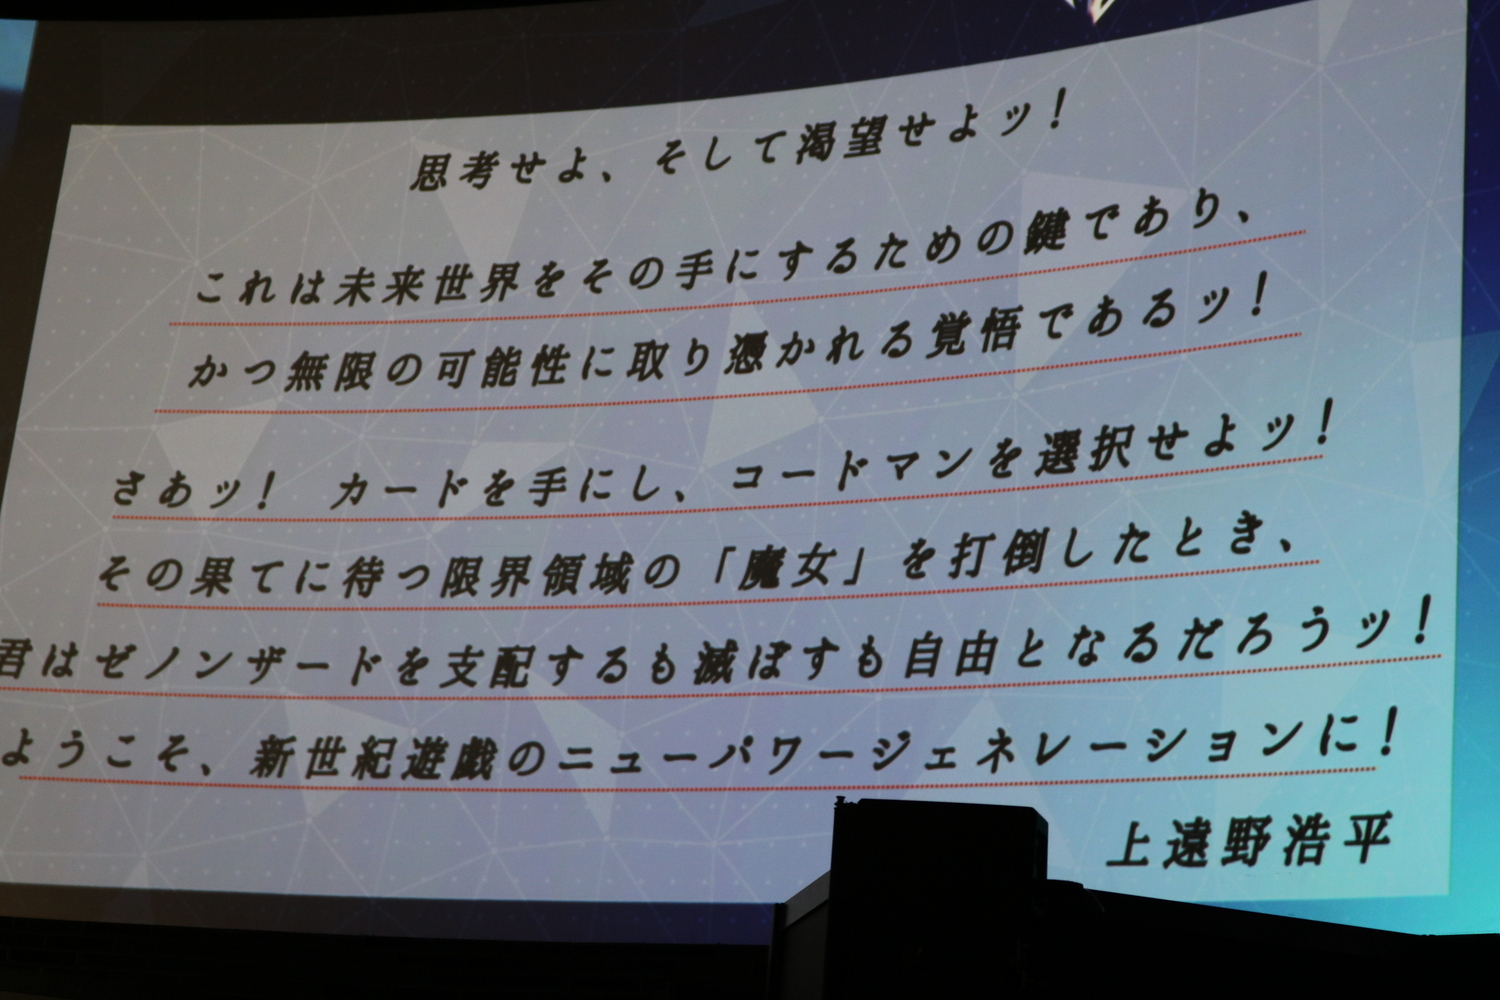 思考せよ、そして渇望せよッ！
これは未来世界をその手にするための鍵であり、
かつ無限の可能性に取り憑かれる覚悟であるッ！
さあッ！　カードを手にし、コードマンを選択せよッ！
その果てに待つ限界領域の「魔女」を打倒したとき、
君はゼノンザードを支配するも滅ぼすも自由となるだろうッ！
ようこそ、新世紀遊戯のニューパワージェネレーションに！
上遠野浩平